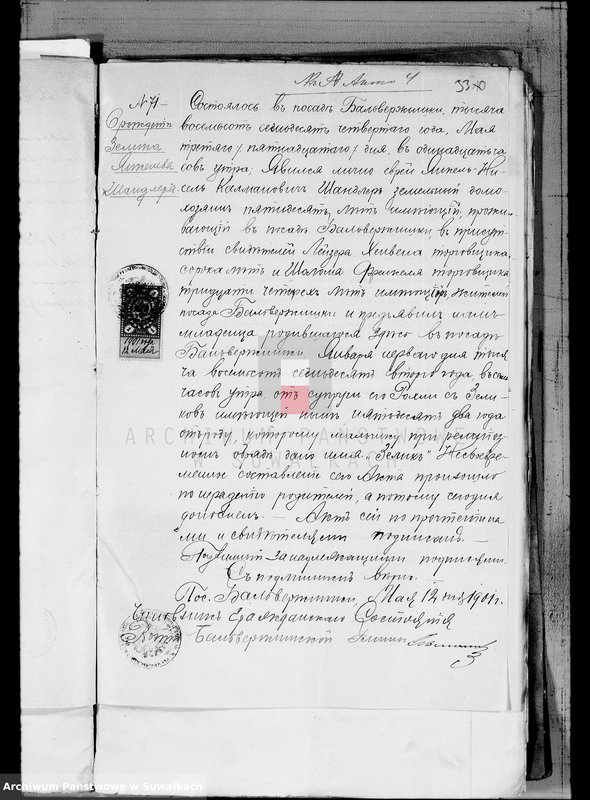 Къ № Акта 4
3340
№ 71
О рождении
Зелика
Янкелева
Шандлера
Состоялось въ посадѣ Бальвержишки, тысяча
восемьсотъ семьдесятъ четвертаго года, Мая
третяго /пятнадцатаго/ дня, въ одинадцать ча
совъ утра, Явился лично еврей Янкель-Ни-
сель Калмановичъ Шандлеръ земельный домо-
хозяинъ пятидесяти лѣтъ имѣющій, прожи-
вающій въ посадѣ Бальвержишки, въ присут
ствіи свидѣтелей Лейзера торговщика,
сорока лѣтъ и Шолома Френкеля торговщика
тридцати четырехъ лѣтъ имѣющихъ, жителей
посада Бальвержишки и предъявилъ намъ
младенца родившагося здѣсь въ посадѣ
Бальвержишки, Января перваго дня тыся
ча восемьсотъ семьдесятъ втораго года, въ семь
часовъ утра отъ супруги его Рохли съ Зели-
ковъ имѣющей нынѣ пятьдесятъ два года
отъ роду, которому мальчику при религіоз-
номъ обрядѣ дано имя „Зеликъ" Несвоевре-
менное составленіе сего Акта произошло
по нерадѣнію родителей, а потому сегодня
дополненъ. — Актъ сей по прочтеніи на
ми и свидѣтелями подписанъ. —
Подлинный за надлежащими подписями.
Съ подлиннымъ вѣрно:
Пос. Бальвержишки, Мая 12 дня 1901 г.
Чиновникъ Гражданскаго Состоянія
Бальвержишской Гмины
ARCHIWUM PAŃSTWOWE
W SUWAŁKACH
Archiwum Państwowe w Suwałkach